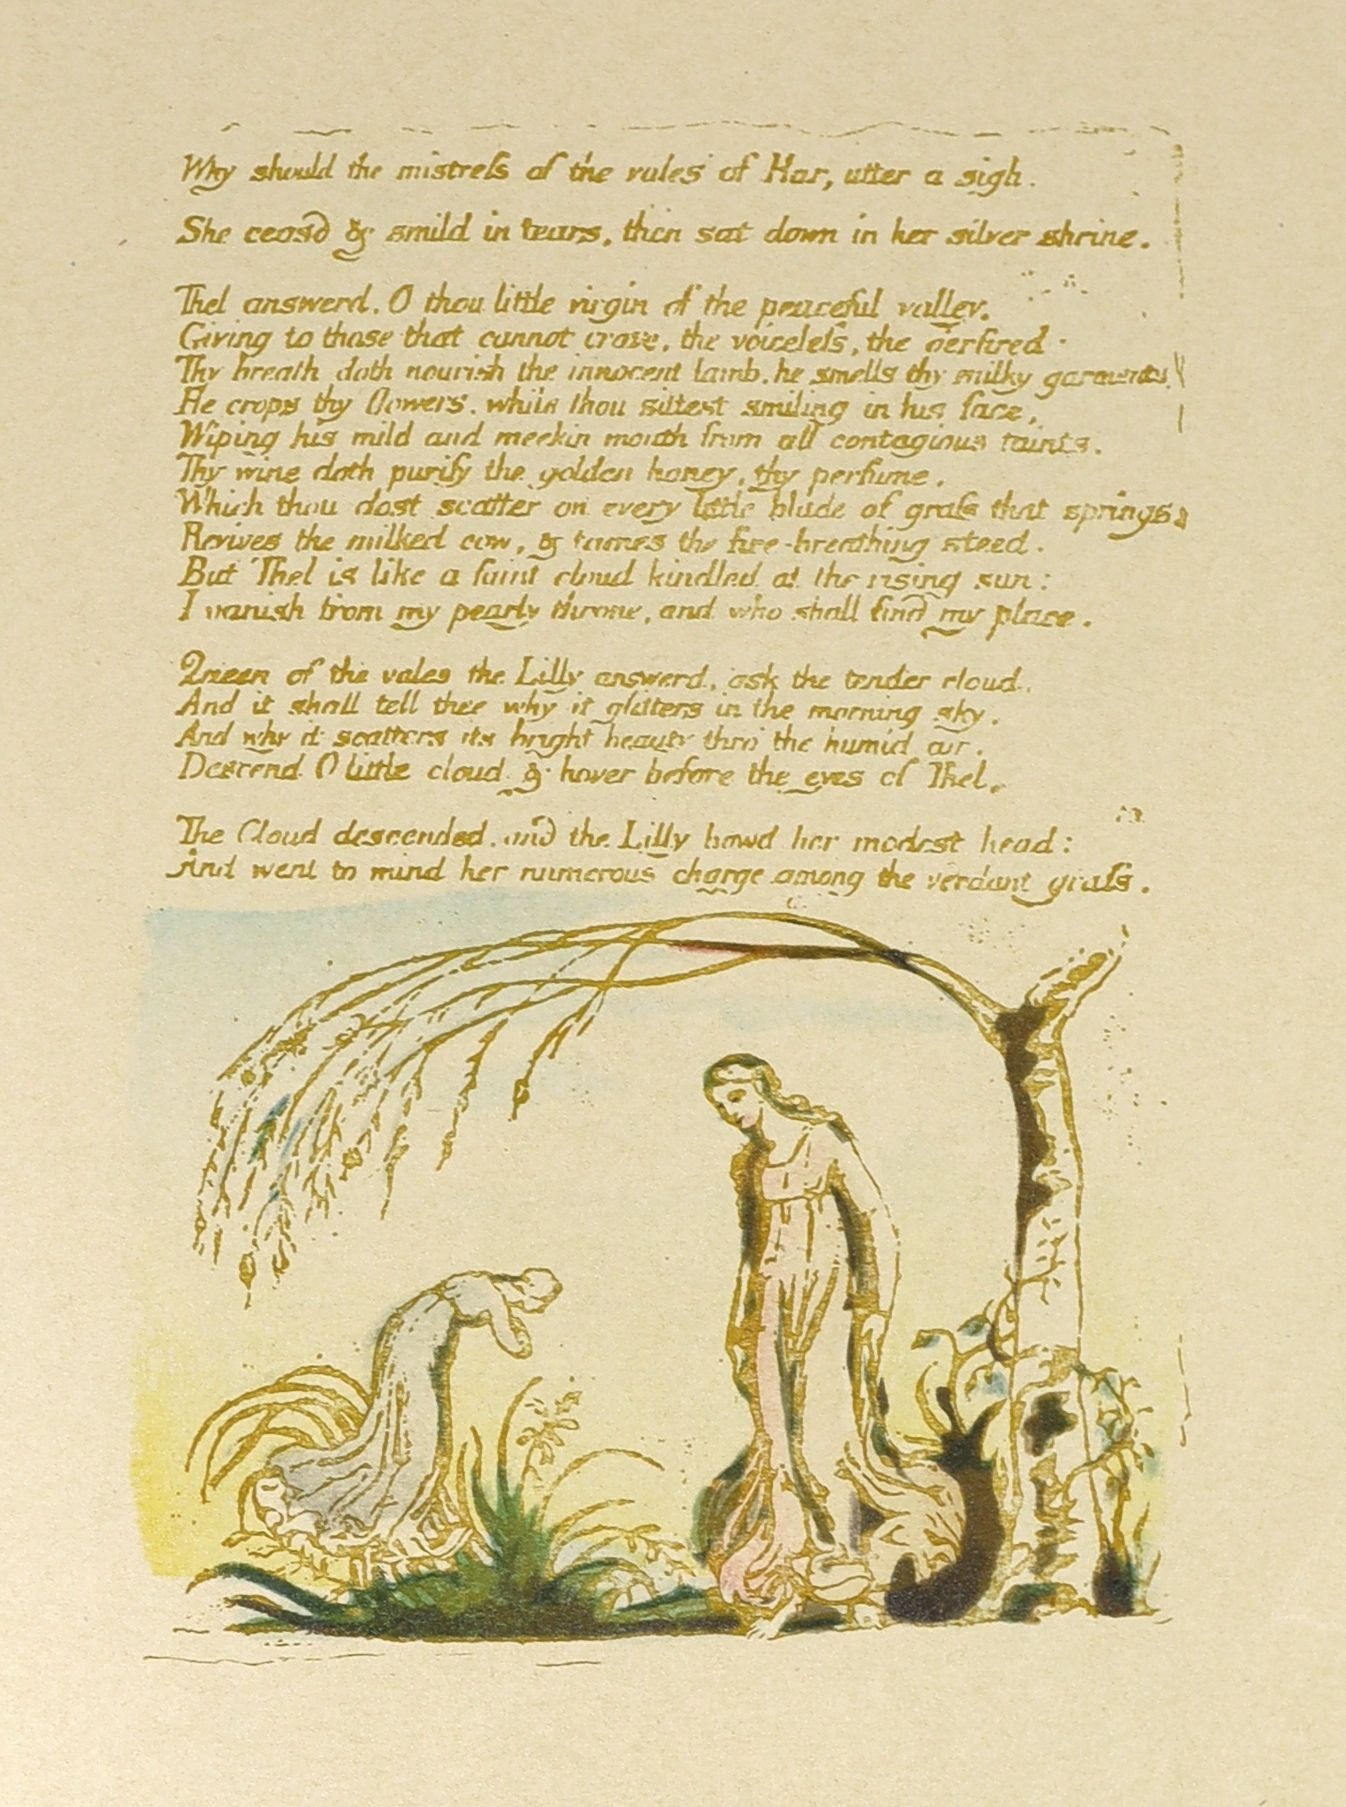 Why should the mistress of the vales of Har, utter a sigh.
She ceasd & smild in tears, then sat down in her silver shrine.
Thel answerd. O thou little virgin of the peaceful valley.
Giving to those that cannot crave, the voiceless, the oerfired.
Thy breath doth nourish the innocent lamb, he smells thy milky garments,
He crops thy flowers, while thou sittest smiling in his face,
Wiping his mild and meekin mouth from all contagious taints.
Thy wine doth purify the golden honey, thy perfume,
Which thou dost scatter on every little blade of grass that springs
Revives the milked cow, & tames the fire-breathing steed.
But Thel is like a faint cloud kindled at the rising sun:
I vanish from my pearly throne, and who shall find my place.
Queen of the vales the Lilly answerd, ask the tender cloud,
And it shall tell thee why it glitters in the morning sky,
And why it scatters its bright beauty thro' the humid air.
Descend O little cloud & hover before the eyes of Thel.
The Cloud descended, and the Lilly bowd her modest head:
And went to mind her numerous charge among the verdant grass.